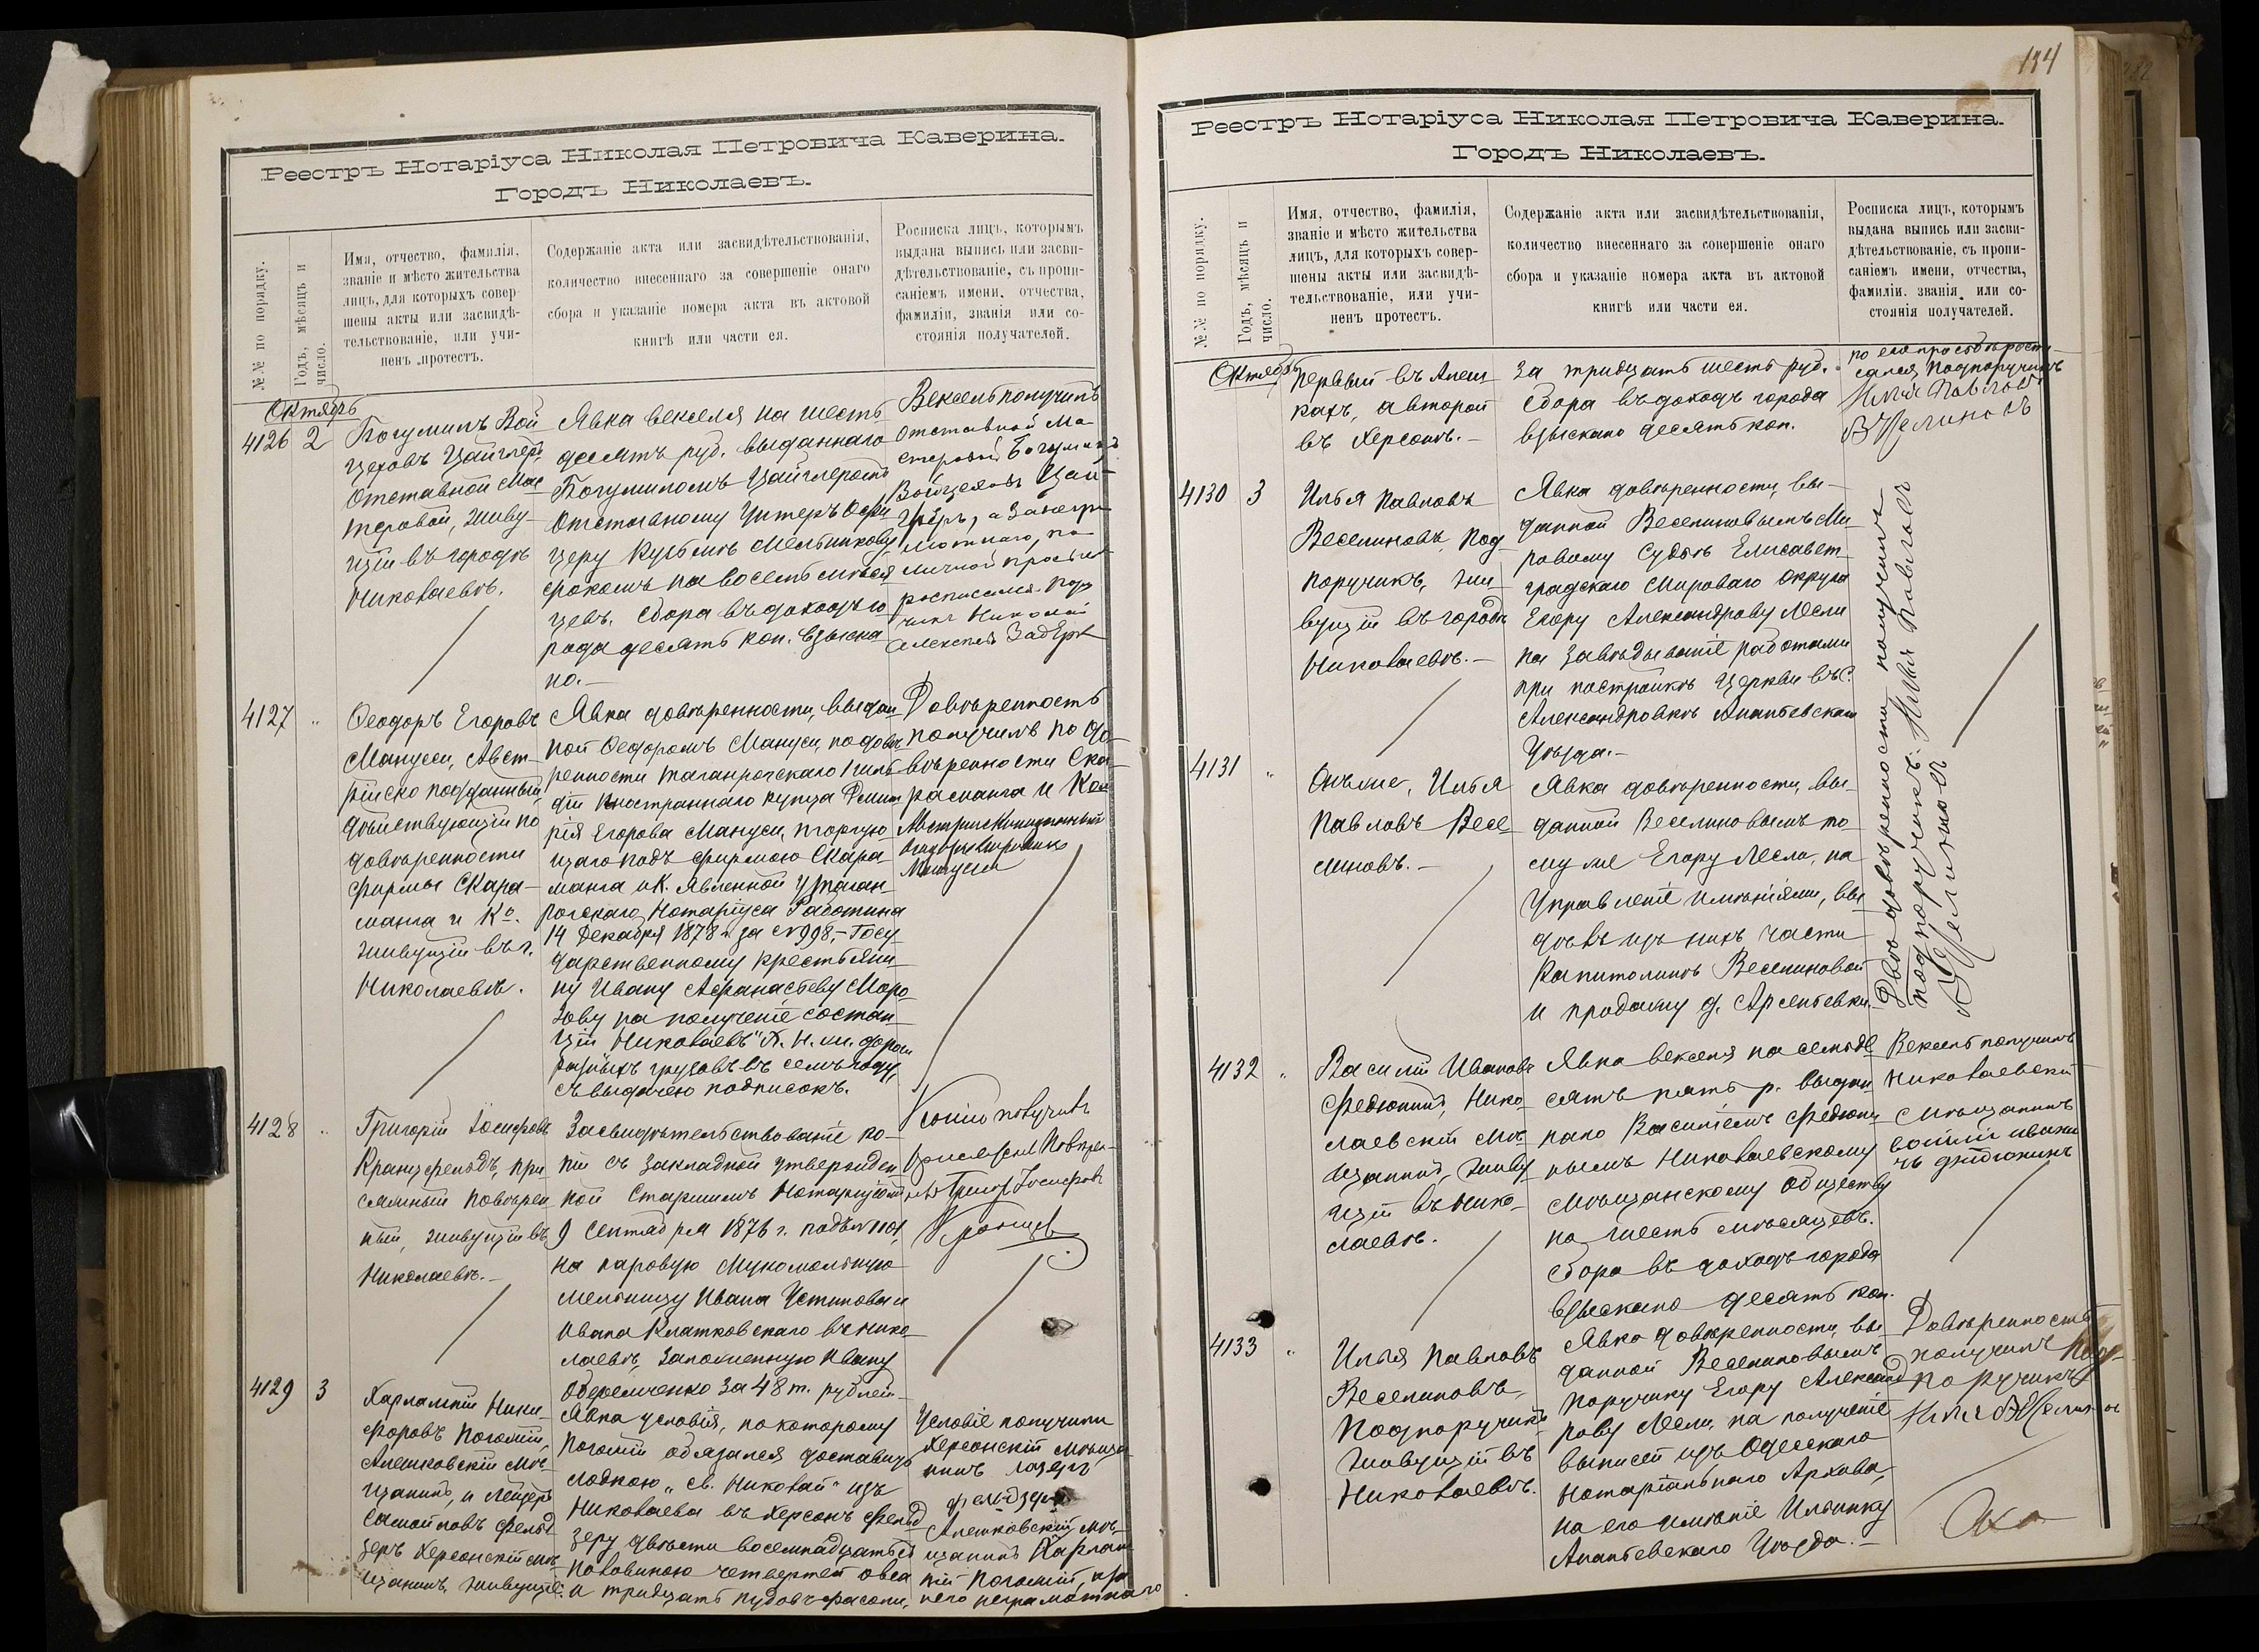 Реестръ Нотаріуса Николая Петровича Каверина.
Городъ Николаевъ.
№№ по порядку.
Годъ, мѣсяцъ и
число.
Имя, отчество, фамилія,
званіе и мѣсто жительства
лицъ, для которыхъ совер-
шены акты или засвидѣ-
тельствованіе, или учи-
ненъ протестъ.
Содержаніе акта или засвидѣтельствованія,
количество внесеннаго за совершеніе онаго
сбора и указаніе номера акта въ актовой
книгѣ или части ея.
Росписка лицъ, которымъ
выдана выпись или засви-
дѣтельствованіе, съ пропи-
саніемъ имени, отчества,
фамиліи, званія или со-
стоянія получателей.
Октябрь
4126 2
Богумилъ Вой
цеховъ Цайглеръ,
Отставной Мас
теровой, живу-
щій въ городѣ
Николаевѣ.
Явка векселя на шесть
десятъ руб. выданнаго
Богумиломъ Цайглеромъ
Отставному Унтеръ Офи
церу Кузьмѣ Мельникову
срокомъ на восемь мѣся
цевъ. Сбора въ доходъ го
рода десять коп. взыска
но.-
Вексель получилъ
Отставной Ма-
стеровой Богумилъ
Войцеховъ Цай-
глеръ, а за негра-
мотнаго, по
личной просьбѣ
росписался
Николай
Алексѣевъ
4127 "
Ѳеодоръ Егоровъ
Мануси, Авст-
рійско подданный,
дѣйствующій по
довѣренности
фирмы Скара-
манга и Кº.
живущій въ г.
Николаевѣ.
Явка довѣренности, выдан
ной Ѳеодоромъ Мануси, по довѣ
ренности Таганрогскаго гиль
діи Иностраннаго купца Дмит
рія Егорова Мануси, торгую
щаго подъ фирмою Скара
манга и К. явленной у Таган
рогскаго Нотаріуса Работина
14 Декабря 1878 г. за №998,- Госу
дарственному крестьяни
ну Ивану Афанасьеву Моро
зову на полученіе со стан
ціи „Николаевъ" Х. Н. ж. дороги
разныхъ грузовъ въ семъ году,
съ выдачею подписокъ.
Довѣренность
получилъ по до-
вѣренности Ска-
раманга и Ко
Австрійскоподданный
Мануси
4128 "
Григорій Іосифовъ
Кранцфельдъ, при
сяжный повѣрен
ный, живущій въ
Николаевѣ.-
Засвидѣтельствованіе ко-
піи съ закладной утвержден
ной Старшимъ Нотаріусомъ
9 Сентября 1876 г. подъ № 1101,
на паровую мукомольную
мельницу Ивана Устинова и
Ивана Клатковскаго въ Нико
лаевѣ, заложенную Ивану
Оберемченко за 48 т. рублей.-
Копію получилъ
Присяжный Повѣрен-
ный Григор. Іосифовъ
4129 3
Харлампій Ники-
форовъ Погожій,
Алешковскій мѣ-
щанинъ, и Лейзеръ
Самойловъ Фельд
зеръ Херсонскій мѣ
щанинъ, живущіе:
Явка условія, по которому
Погожій обязался доставить
лодкою „Св. Николай" изъ
Николаева въ Херсонъ Фельд
зеру двѣсти восемнадцать съ
половиною четвертей овса
и тридцать пудовъ фасоли,
Условіе получили
Херсонскій мѣща
нинъ Лазерь
фельдзеръ
Алешковскій мѣ-
щанинъ Харлам
пій Погожій, а за
него неграмотнаго
134
Реестръ Нотаріуса Николая Петровича Каверина.
Городъ Николаевъ.
№№ по порядку.
Годъ, мѣсяцъ и
число.
Имя, отчество, фамилія,
званіе и мѣсто жительства
лицъ, для которыхъ совер-
шены акты или засвидѣ-
тельствованіе, или учи-
ненъ протестъ.
Содержаніе акта или засвидѣтельствованія,
количество внесеннаго за совершеніе онаго
сбора и указаніе номера акта въ актовой
книгѣ или части ея.
Росписка лицъ, которымъ
выдана выпись или засви-
дѣтельствованіе, съ пропи-
саніемъ имени, отчества,
фамиліи, званія или со-
стоянія получателей.
Октябрь
первый въ Алеш
кахъ, а второй
въ Херсонѣ.-
за тридцать шесть руб.
Сбора въ доходъ города
взыскано десять коп.
по его просьбѣ роспи-
сался, Подпоручикъ
Илья Павловъ
Веселиновъ
4130 3
Илья Павловъ
Веселиновъ, Под
поручикъ, жи-
вущій въ городѣ
Николаевѣ.-
Явка довѣренности, вы-
данной Веселиновымъ Ми-
ровому Судьѣ Елисавет-
градскаго Мироваго Округа
Егору Александрову Лесли
на завѣдываніе работами
при постройкѣ Церкви въ С.
Александровкѣ Ананьевскаго
Уѣзда.-
Двѣ довѣренности получилъ
подпоручикъ: Илья Павловъ
Веселиновъ
4131 "
Онъ же, Илья
Павловъ Весе
линовъ.-
Явка довѣренности, вы-
данной Веселиновымъ то-
му же Егору Лесли, на
Управленіе имѣніями, вы-
дѣлъ изъ нихъ части
Капитолинѣ Веселиновой
и продажу д. Арсентьевки.
4132 "
Василій Ивановъ
Федюнинъ, Нико-
лаевскій мѣ-
щанинъ, живу
щій въ Нико-
лаевѣ.
Явка векселя на семьде
сятъ пять р. выдан
наго Василіемъ Федюни
нымъ Николаевскому
Мѣщанскому Обществу
на шесть мѣсяцевъ.
Сбора въ доходъ города
взыскано десять коп.
Вексель получилъ
Николаевскій
Мѣщанинъ
4133 "
Илья Павловъ
Веселиновъ,
Подпоручикъ
живущій въ
Николаевѣ.
Явка довѣренности, вы-
данной Веселиновымъ
поручику Егору Александ
рову Лесли, на полученіе
выписей изъ Одесскаго
Нотаріальнаго Архива,
на его имѣніе Ильинку
Ананьевскаго Уѣзда.-
Довѣренность
получилъ Под-
поручикъ
Илья Веселиновъ